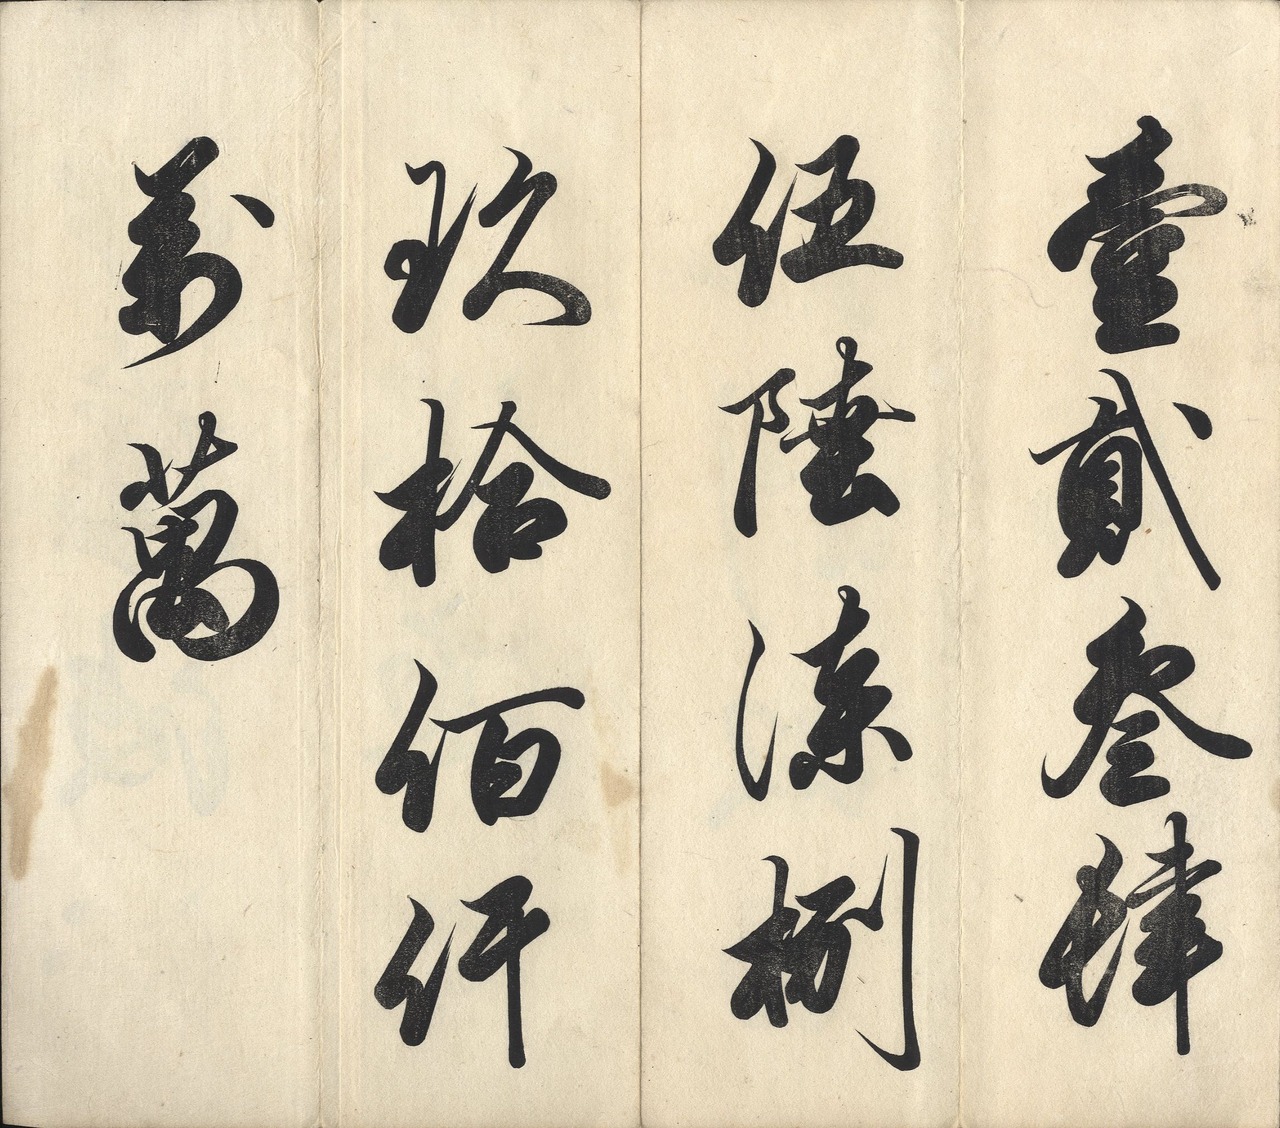 壹貳叄肆
伍陸漆捌
玖拾佰仟
萬萬